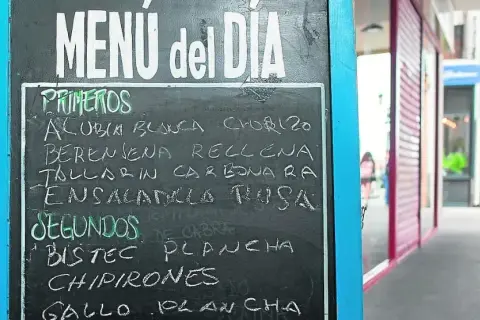 MENÚ del DÍA
PRIMEROS
ALUBIA BLANCA CHORIZO
BERENJENA RELLENA
TALLARIN CARBONARA
ENSALADILLA RUSA
SEGUNDOS
BISTEC PLANCHA
CHIPIRONES
GALLO PLANCHA